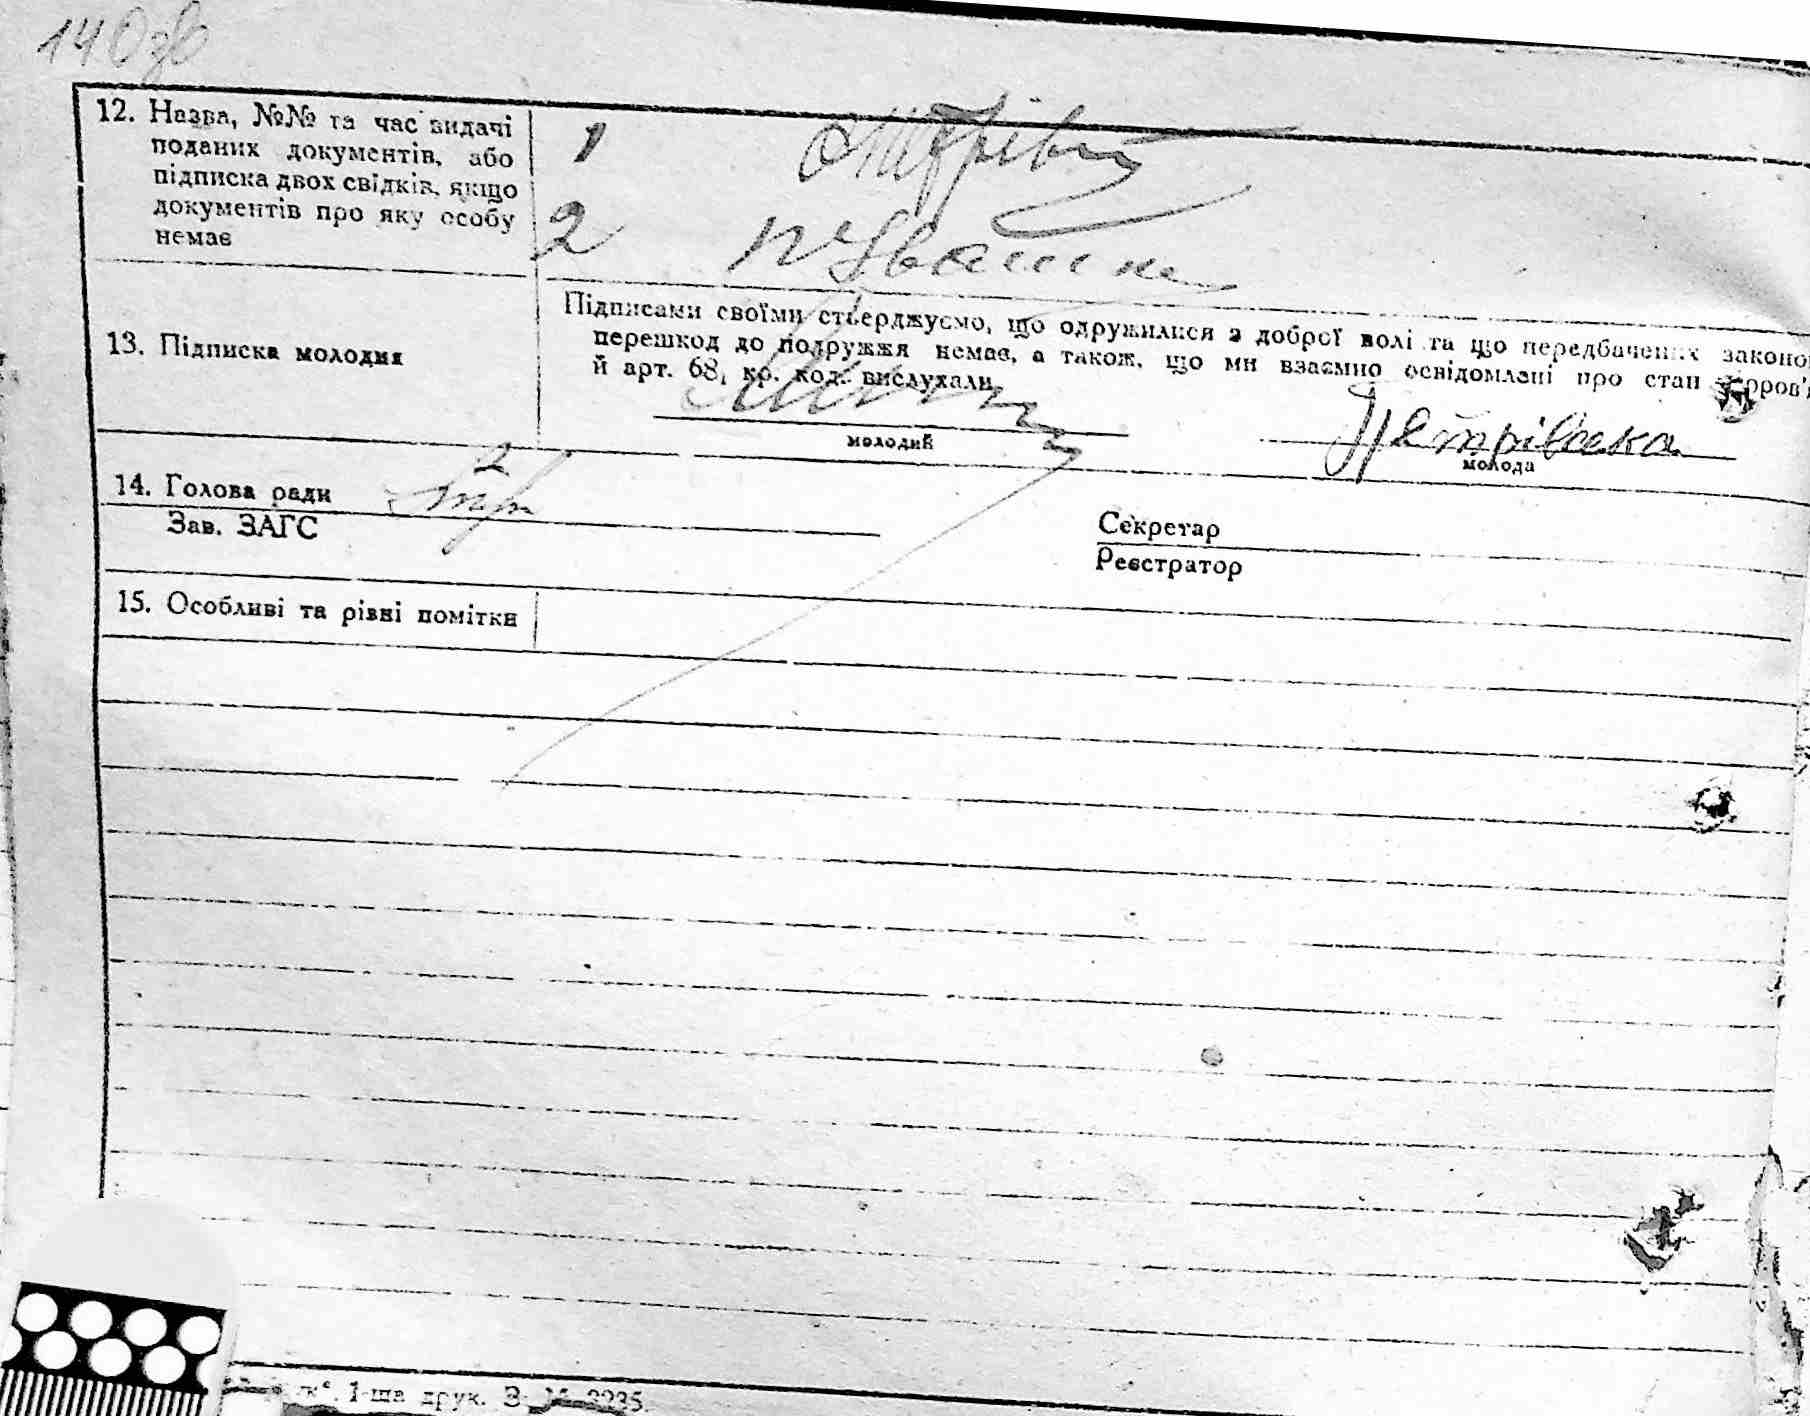 140зв
12. Назва, №№ та час видачі
поданих документів, або
підписка двох свідків, якщо
документів про яку особу
немає
1
2 Івашк
13. Підписка молодня
Підписами своїми стверджуємо, що одружилися з доброї волі та що передбачених законо
перешкод до подружжя немає, а також, що ми взаємно освідомлені про стан здоров'я
й арт. 68, кр. код. вислухали
молодий
Петрівська
молода
14. Голова ради
Зав. ЗАГС
Секретар
Реєстратор
15. Особливі та рівні помітки
1-ша друк. З. 2235.